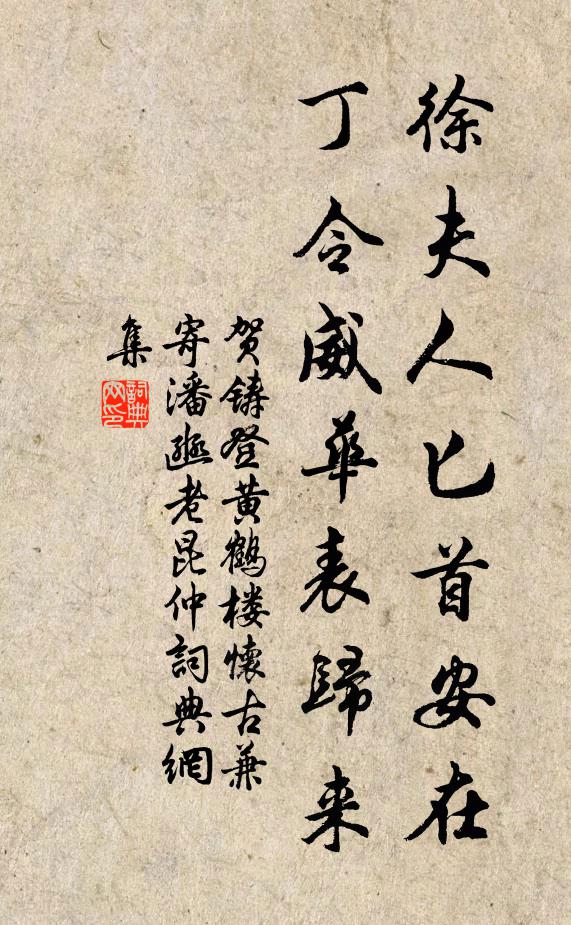 徐夫人匕首安在
丁令威華表歸来
賀鑄登黄鶴樓懷古兼
寄潘邠老昆仲詞典網
集
詞典網印